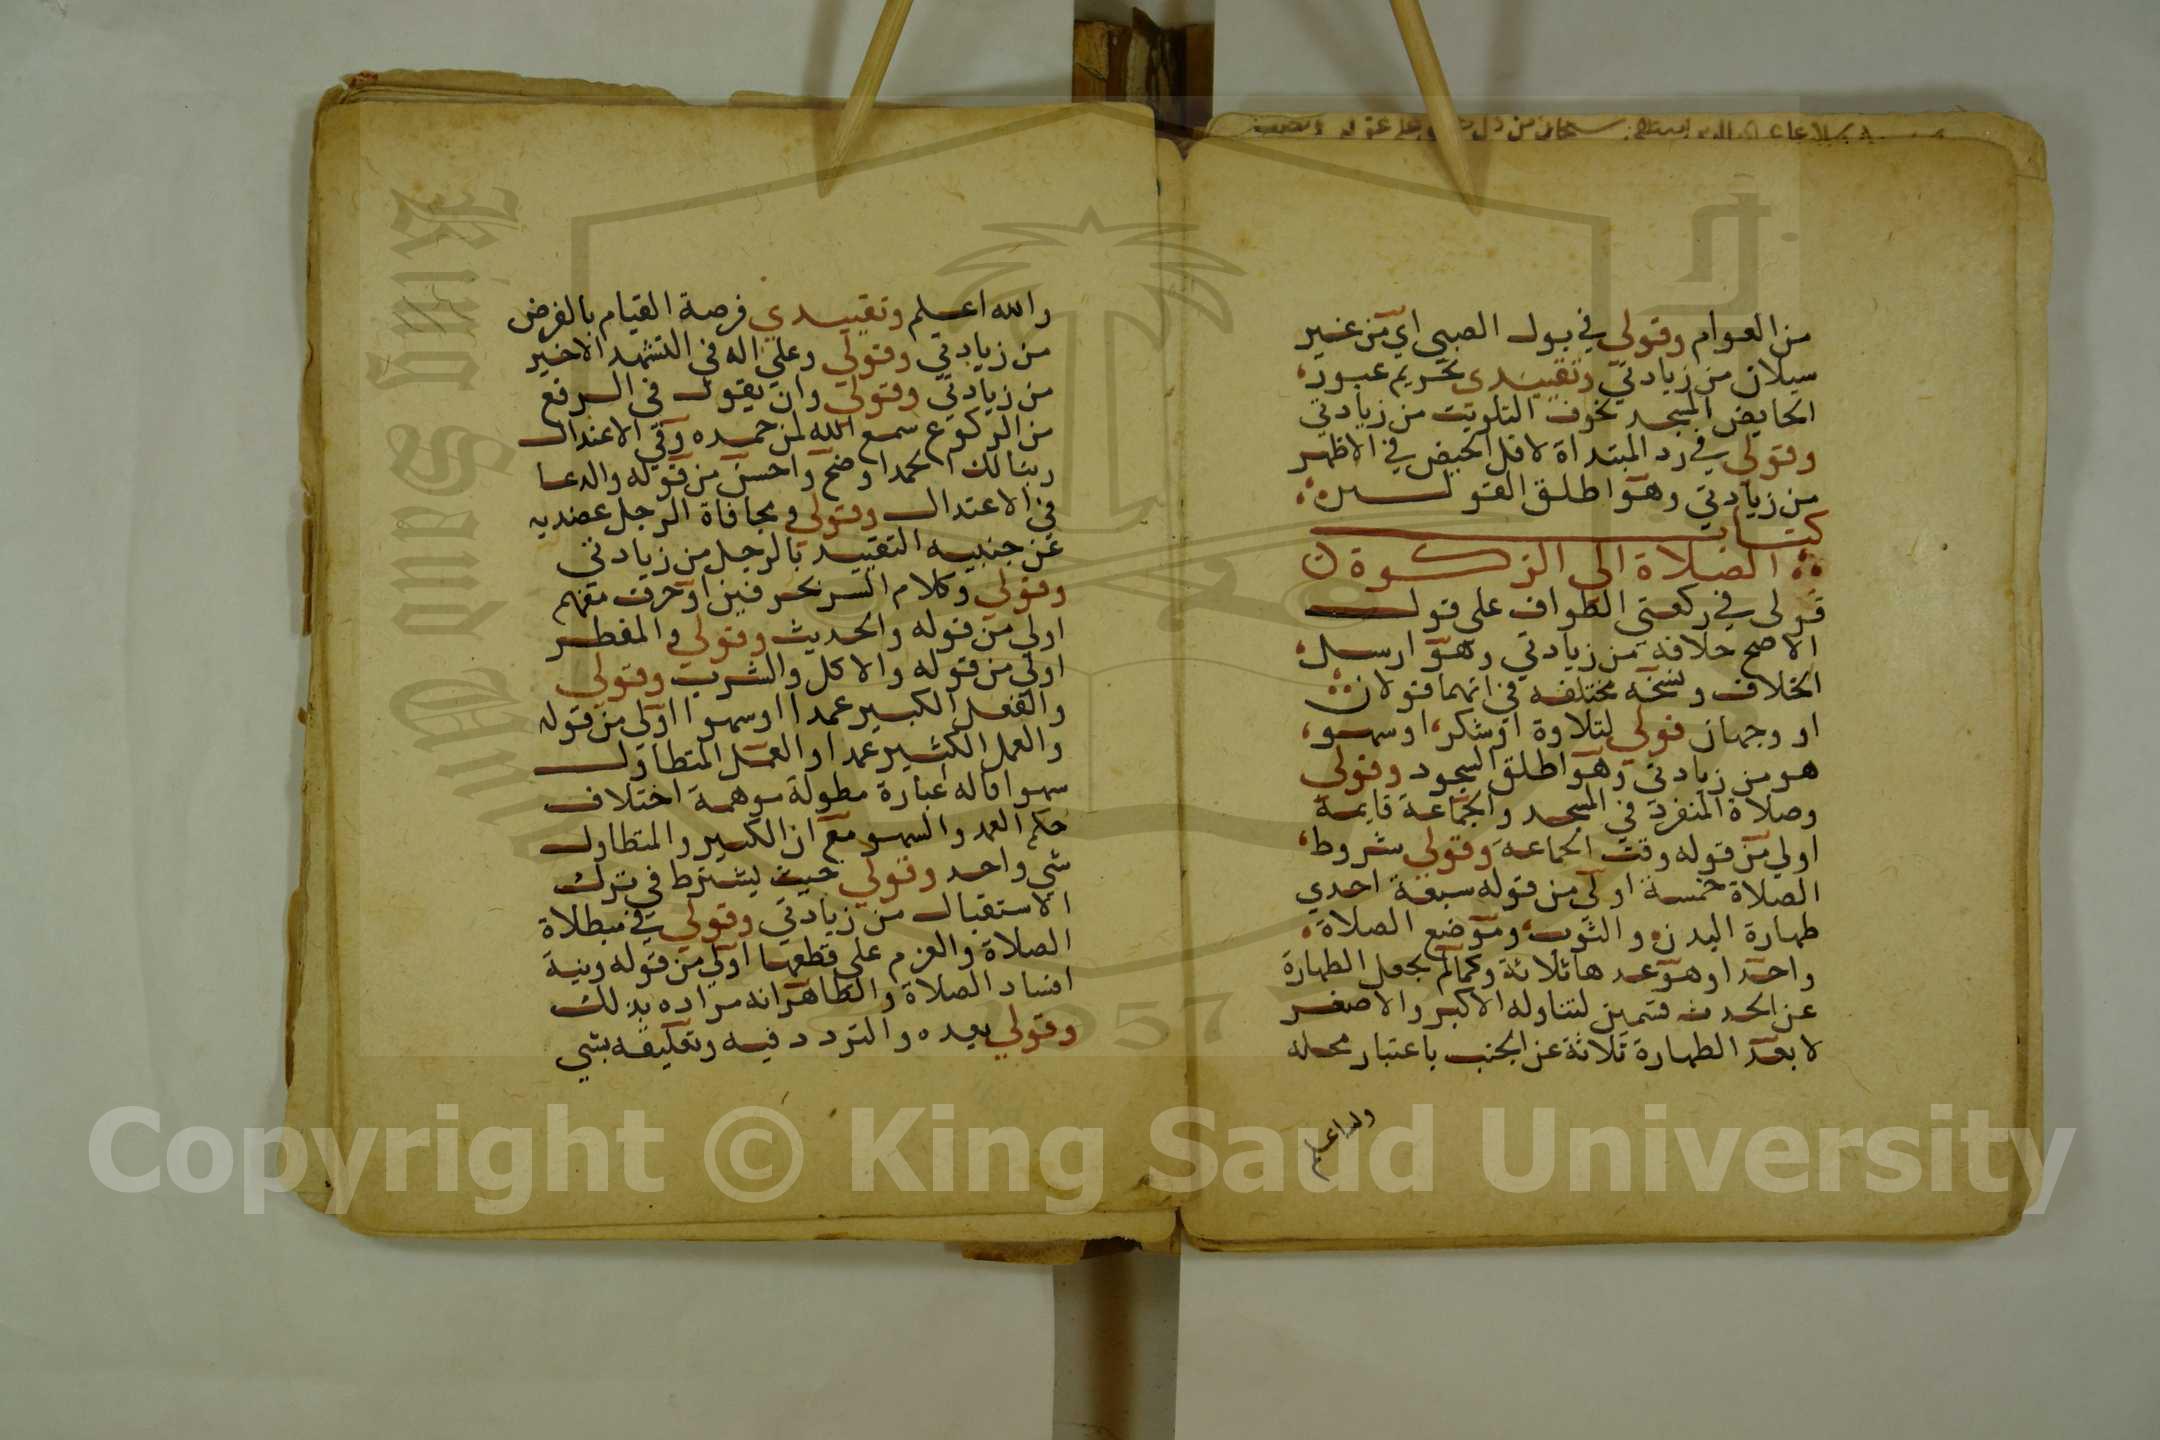 من العوام وقولي في بول الصبي اي من غير
سيلان من زيادتي وتقييدي تحريم عبور
الحايض المسجد بخوف التلويث من زيادتي
وقولي في رد المبتداة لاقل الحيض في الاظهر
من زيادتي وهو اطلق القولين
كتاب
الصلاة الى الزكوة
قولي في ركعتي الطواف على قول
الاصح خلافه من زيادتي وهو ارسل
الخلاف ونسخه مختلفه في انهما قولان
او وجهان قولي لتلاوة او شكر او سهو
هو من زيادتي وهو اطلق السجود وقولي
وصلاة المنفرد في المسجد والجماعة قايمة
اولي من قوله وقت الجماعه وقولي شروط
الصلاة خمسة اولى من قوله سبعة احدي
طهارة البدن والثوب وموضع الصلاة
واحدا وهو عدها ثلاثة وكما لم يجعل الطهارة
عن الحدث قسمين لتناوله الاكبر والاصغر
لا بعد الطهارة ثلاثة عن الخبث باعتبار محله
والله اعلم
والله اعلم وتقييدي فرصة القيام بالفرض
من زيادتي وقولي وعلى اله في التشهد الاخير
من زيادتي وقولي وان يقول في الرفع
من الركوع سمع الله لمن حمده وفي الاعتدال
ربنا لك الحمد اوضح واحسن من قوله والدعا
في الاعتدال وقولي ومجافاة الرجل عضديه
عن جنبيه التقييد بالرجل من زيادتي
وقولي وكلام البشر بحرفين او حرف مفهم
اولي من قوله والحديث وقولي والمفطر
اولي من قوله والاكل والشرب وقولي
والفعل الكبير عمدا او سهوا اولى من قوله
والعمل الكثير عمدا والعمل المتطاول
سهوا فانه عبارة مطولة موهمة اختلاف
حكم العمد والسهو مع ان الكبير والمتطاول
شي واحد وقولي حيث يشترط في ترك
الاستقبال من زيادتي وقولي في مبطلاة
الصلاة والعزم على قطعها اولي من قوله ونية
افساد الصلاة والظاهر انه مراده بذلك
وقولي بعده والتردد فيه وتعليقه بشي
King Saud University
1957
Copyright © King Saud University